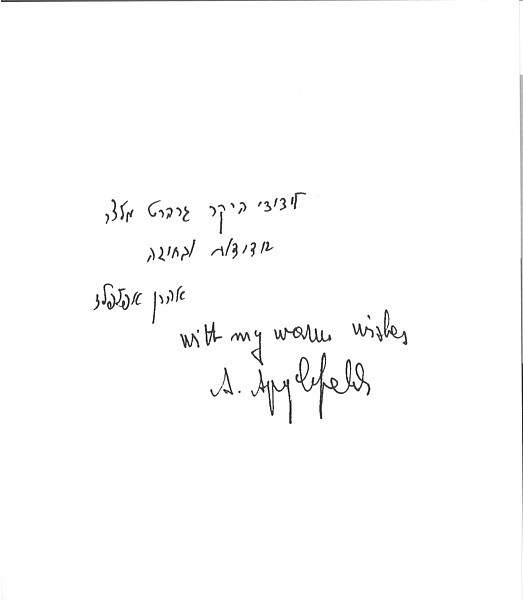 לידידי היקר גרברט מלצר
בידידות ובחיבה
אהרן אפלפלד
with my warm wishes
A. Appelfeld